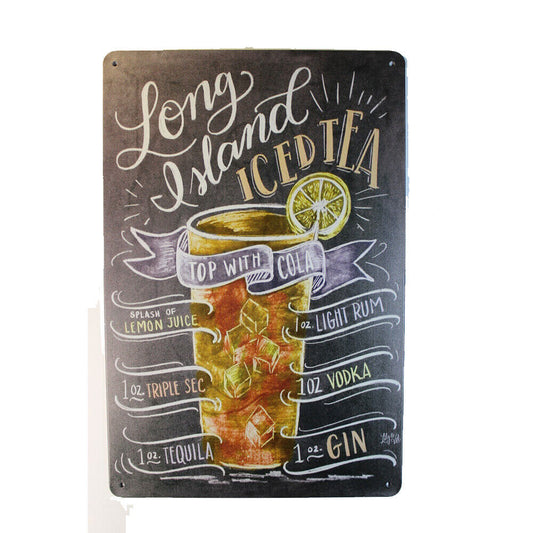 Long
Island
ICED TEA
TOP WITH COLA
SPLASH OF
LEMON JUICE
1 OZ. LIGHT RUM
1 OZ. TRIPLE SEC
1 OZ VODKA
1 OZ. TEQUILA
1 OZ. GIN